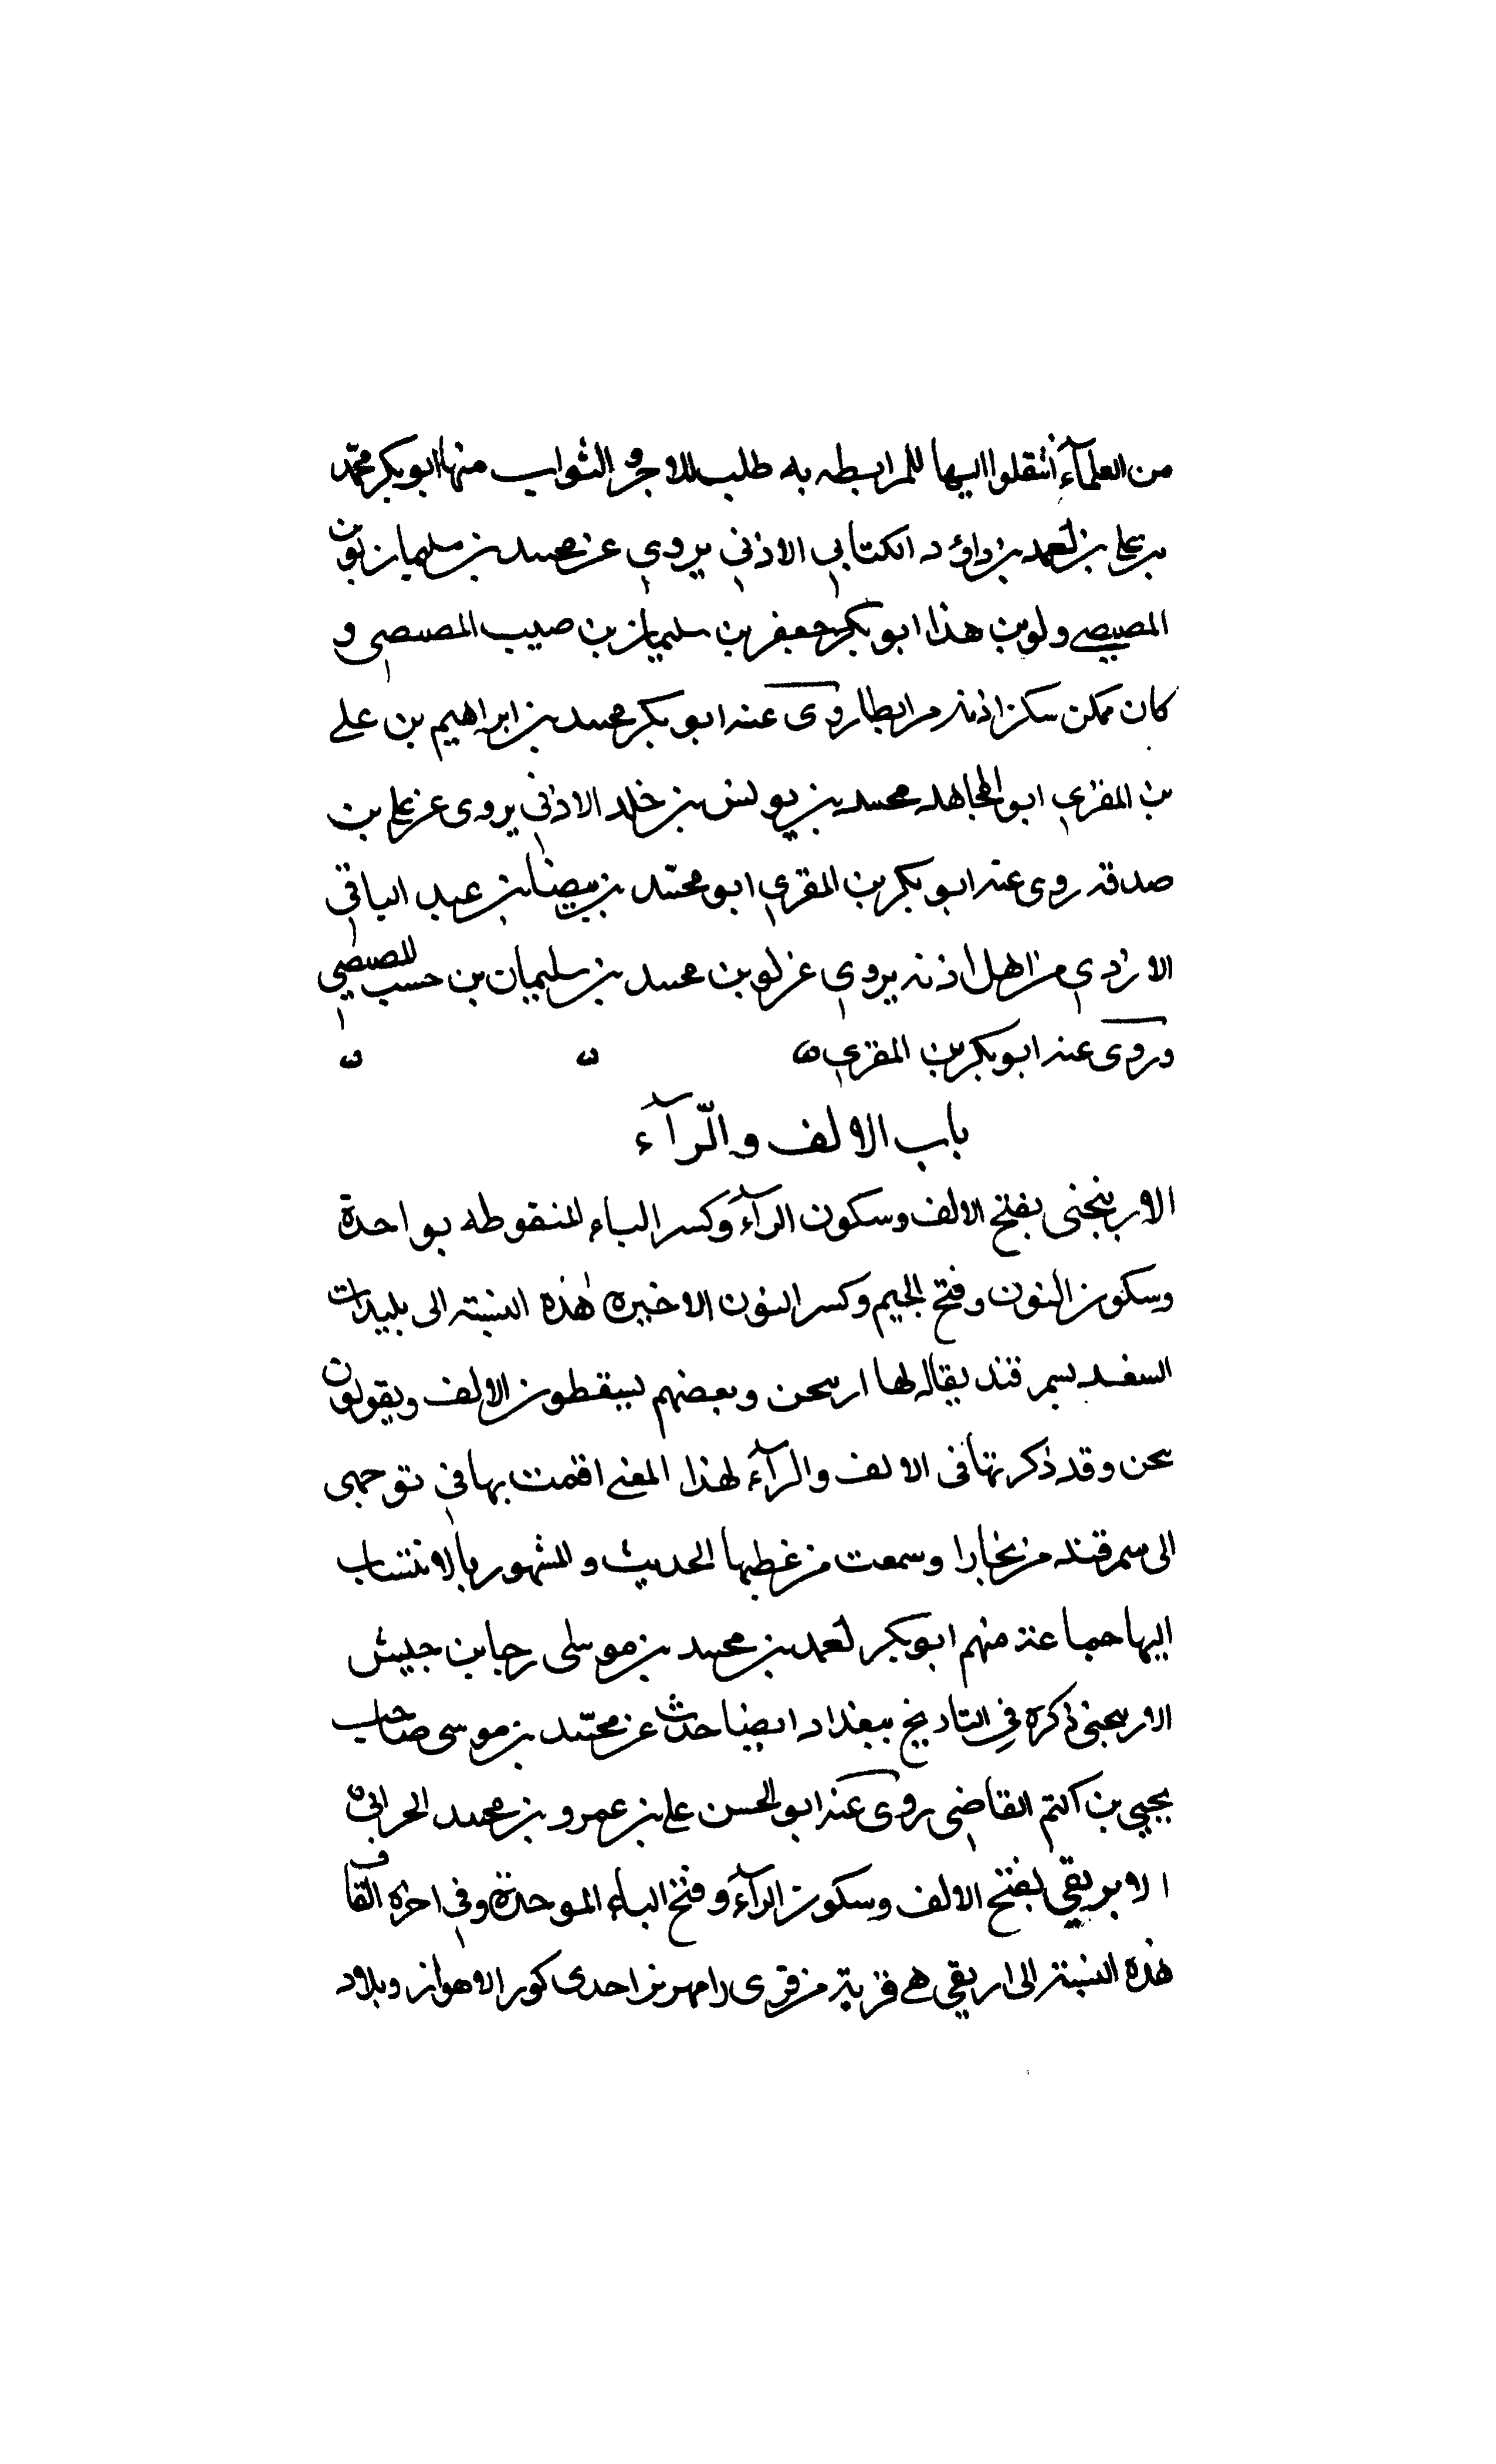 من العلمآء انتقلوا اليها للمرابطه به طلب للاجر و الثواب منها ابو بكر محمّد
بن علي بن احمد بن داؤد الكتابي الاذني يروي عن محمد بن سليمان لوين
المصيصي ولوين هذا ابو بكر جعفر بن سليمان بن صبيب المصيصي و
كان ممكن سكن اذنه مرابطا روى عنه ابو بكر محمد بن ابراهيم بن علے
بن المقري ابو المجاهد محمد بن يونس بن خلد الاذني يروى عن علي بن
صدقه روى عنه ابو بكر بن المقري ابو محمّد بن بيضان بن عبد الباقي
الازدي من اهل اذنه يروي عن لوين محمد بن سليمان بن حسب المصيصي
وروى عنه ابو بكر بن المقري
باب الالف والرّآء
الاربنجنى بفتح الالف وسكون الرآء وكسر الباء المنقوطه بواحدة
وسكون النون وفتح الجيم وكسر النون الاخيره هذه النسبته الى بليدات
السغد بسمرقند يقال لها اربنجن وبعضهم يسقطون الالف ويقولون
بنجن وقد ذكرتها فى الالف والرآء لهذا المعنے اقمت بها في توجهى
الى سمرقند من بخارا وسمعت من خطيبها الحديث والمشهور بالانتساب
اليها جماعة منهم ابو بكر احمد بن محمد بن موسى رجا بن جيش
الاربنجنى ذكره فى التاريخ ببغداد ايضا حدث عن محمّد بن موسى صاحب
يحيى بن اكثم القاضي روى عنه ابو الحسن على بن عمرو بن محمد الحرانى
الاربقي بفتح الالف وسكون الرآء وفتح الباء الموحدة وفي اخره القاف
هذه النسبته الى اربقي هے قرية من قرى رامهرمز احدى كور الاهواز وبلاد